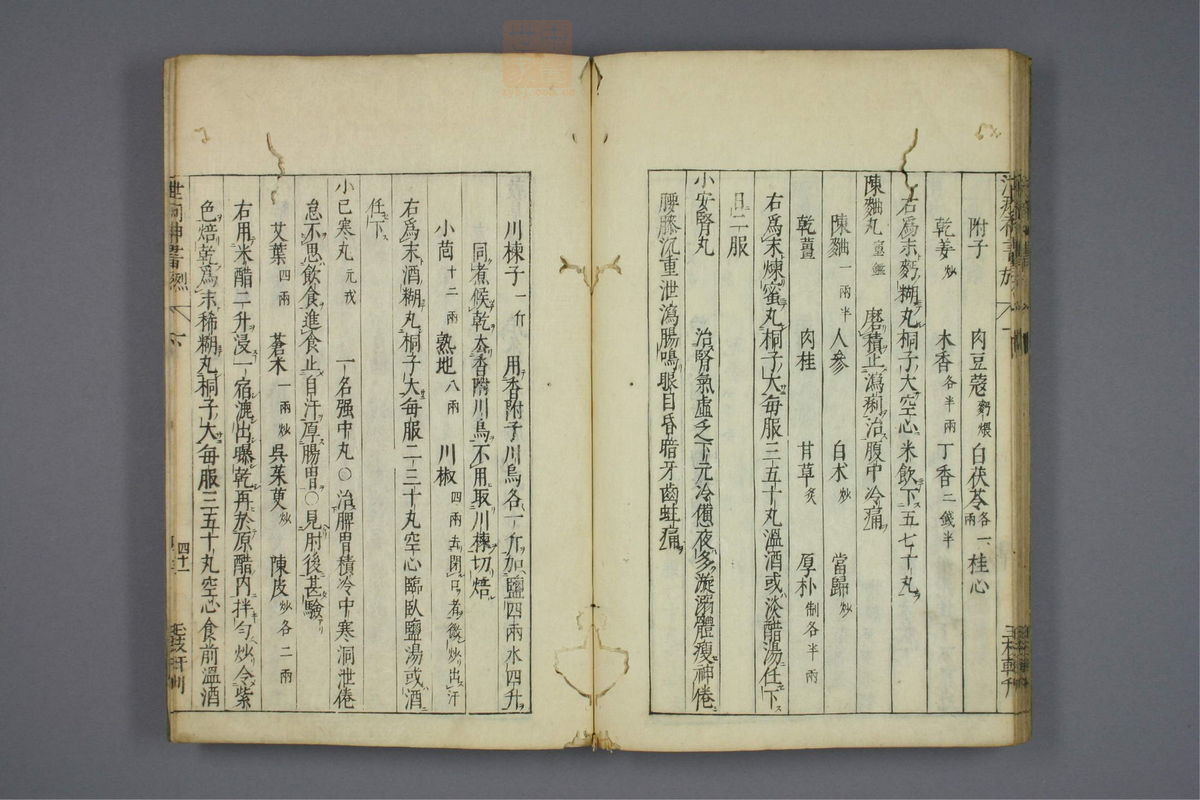 附子 肉豆蔻麪煨 白茯苓各一兩 桂心
乾姜炒 木香各半兩 丁香二錢半
右爲末麪糊丸桐子大空心米飲下五七十丸
陳麯丸 磨積止瀉痢治腹中冷痛
陳麯一兩半 人參 白朮炒 當歸炒
乾薑 肉桂 甘草炙 厚朴制各半兩
右爲末煉蜜丸桐子大毎服三五十丸溫酒或淡醋湯任下
日二服
小安腎丸 治腎氣虛乏下元冷憊夜多漩溺體瘦神倦
腰膝沉重泄瀉腸鳴眼目昏暗牙齒蛀痛
川楝子一斤 用香附子川烏各一斤加鹽四兩水四升
同煮候乾去香附川烏不用取川楝切焙
小茴十二兩 熟地八兩 川椒四兩去閉口者微炒出汗
右爲末酒糊丸桐子大毎服二三十丸空心臨臥鹽湯或酒
任下
小已寒丸元戎 一名强中丸○治脾胃積冷中寒洞泄倦
怠不思飲食進食止自汗厚腸胃○見肘後甚驗
艾葉四兩 蒼朮一兩炒 吳茱萸炒 陳皮炒各二兩
右用米醋二升浸一宿漉出曝乾再於原醋内拌匀炒令紫
色焙乾爲末稀糊丸桐子大毎服三五十丸空心食前溫酒
四十一